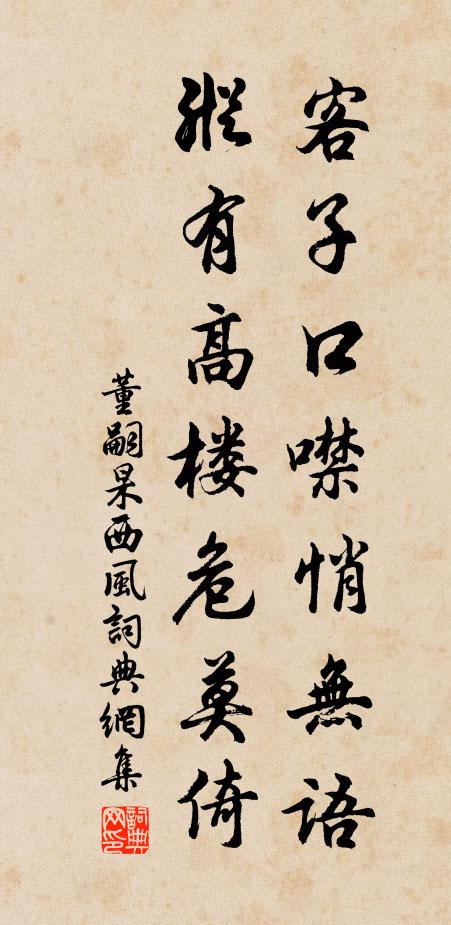 客子口噤悄無語
縱有高樓危莫倚
董嗣杲西風詞典網集
詞典网印